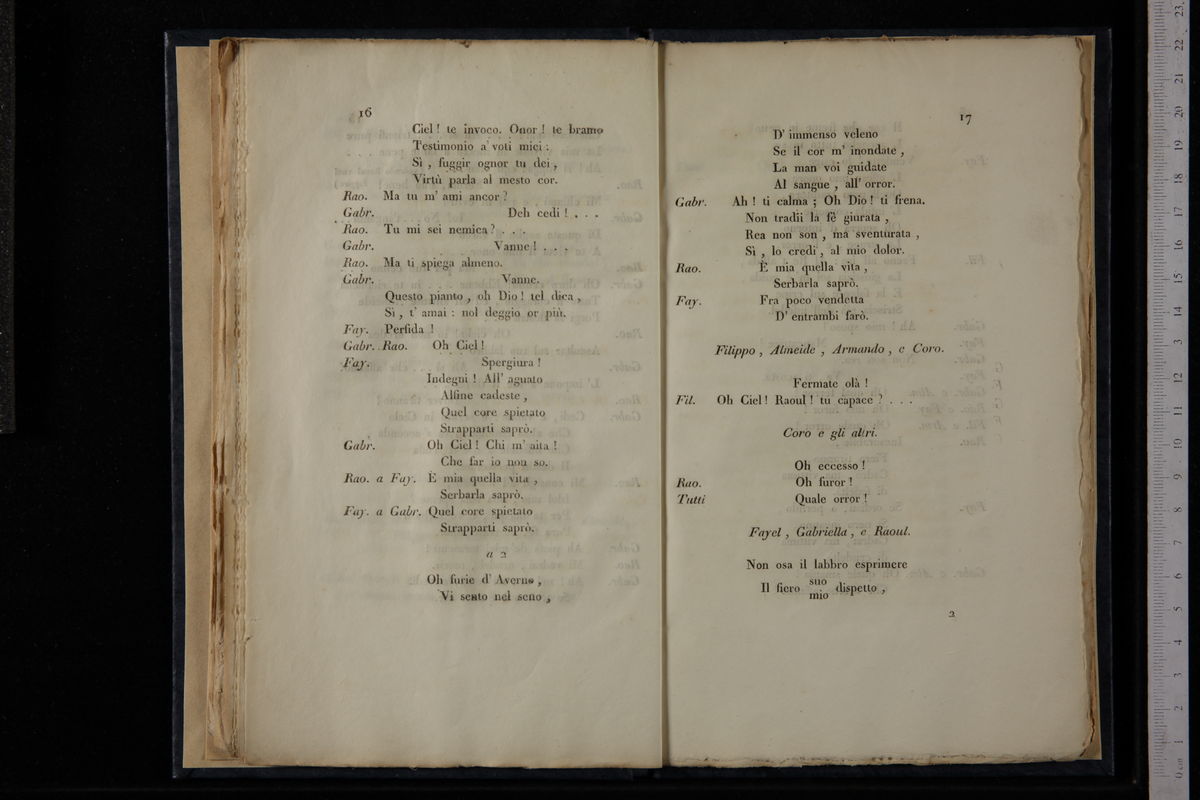 16
Ciel ! te invoco. Onor ! te bramo
Testimonio a' voti miei :
Sì , fuggir ognor tu dei ,
Virtù parla al mesto cor.
Rao. Ma tu m' ami ancor ?
Gabr. Deh cedi ! . . .
Rao. Tu mi sei nemica ? . . .
Gabr. Vanne ! . . .
Rao. Ma ti spiega almeno.
Gabr. Vanne.
Questo pianto , oh Dio ! tel dica ,
Sì , t' amai : nol deggio or più.
Fay. Perfida !
Gabr. Rao. Oh Ciel !
Fay. Spergiura !
Indegni ! All' aguato
Alfine cadeste ,
Quel core spietato
Strapparti saprò.
Gabr. Oh Ciel ! Chi m' aita !
Che far io non so.
Rao. a Fay. È mia quella vita ,
Serbarla saprò.
Fay. a Gabr. Quel core spietato
Strapparti saprò.
a 2
Oh furie d' Averno ,
Vi sento nel seno ,
17
D' immenso veleno
Se il cor m' inondate ,
La man voi guidate
Al sangue , all' orror.
Gabr. Ah ! ti calma ; Oh Dio ! ti frena.
Non tradii la fè giurata ,
Rea non son , ma sventurata ,
Sì , lo credi , al mio dolor.
Rao. È mia quella vita ,
Serbarla saprò.
Fay. Fra poco vendetta
D' entrambi farò.
Filippo , Almeide , Armando , e Coro.
Fermate olà !
Fil. Oh Ciel ! Raoul ! tu capace ? . . .
Coro e gli altri.
Oh eccesso !
Rao. Oh furor !
Tutti Quale orror !
Fayel , Gabriella , e Raoul.
Non osa il labbro esprimere
Il fiero suo dispetto ,
mio
2